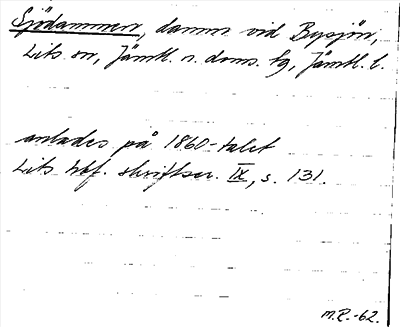 Sjödammen, damm vid Bysjön,
Lits sn, Jämtl. n. doms. tg, Jämtl. l.
anlades på 1860-talet
Lits hbf. skriftser. IX, s. 131.
M.P.-62.